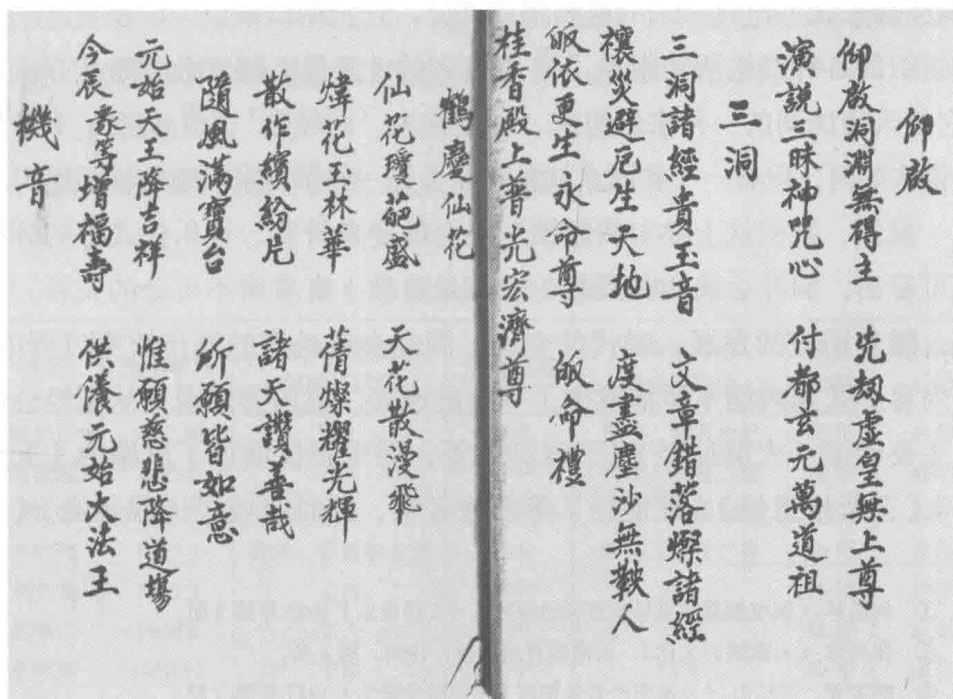 仰啟
仰啟洞淵無碍主 先劫虛皇無上尊
演說三昧神咒心 付都玄元萬道祖
三洞
三洞諸經貴玉音 文章錯落燦諸經
禳災避厄生天地 度盡塵沙無鞅人
皈依更生永命尊 皈命禮
桂香殿上普光宏濟尊
鶴慶仙花
仙花瓊葩盛 天花散漫飛
煒花玉林華 蒨燦耀光輝
散作繽紛片 諸天讚善哉
隨風滿寶台 所願皆如意
元始天王降吉祥 惟願慈悲降道場
今辰眾等增福壽 供養元始大法王
機音